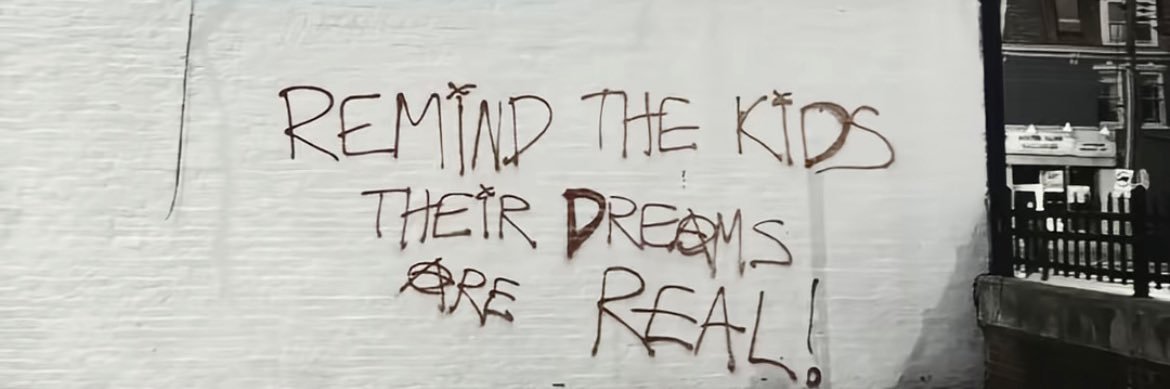 REMIND THE KIDS
THEIR DREAMS
ARE REAL!